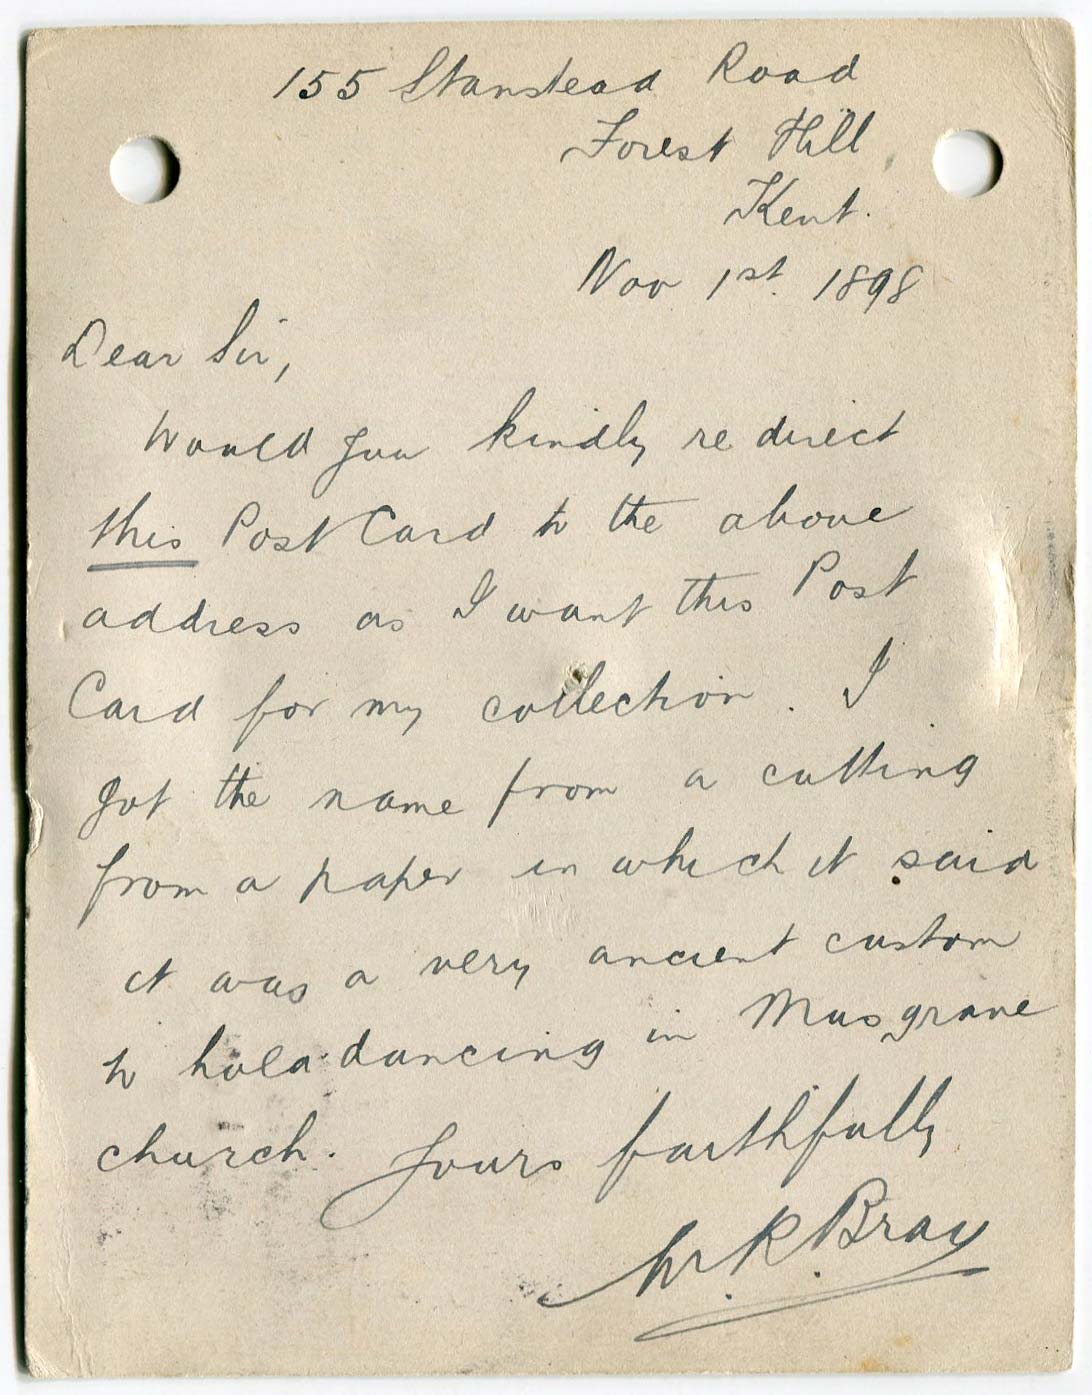 155 Stanstead Road
Forest Hill
Kent.
Nov 1st. 1898
Dear Sir,
Would you kindly re direct
this Post Card to the above
address as I want this Post
Card for my collection. I
got the name from a cutting
from a paper in which it said
it was a very ancient custom
to hold dancing in Musgrave
church. Yours faithfully
W. R. Bray